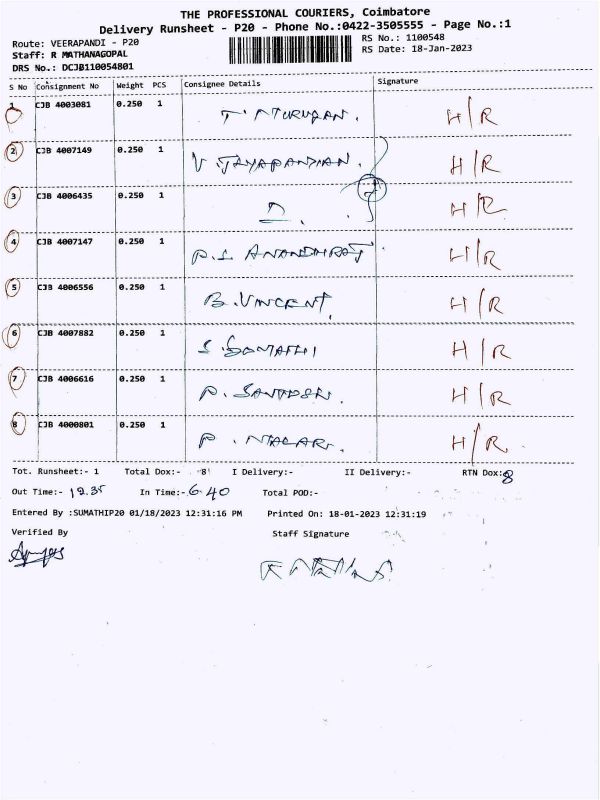 THE PROFESSIONAL COURIERS, Coimbatore
Delivery Runsheet - P20 - Phone No.:0422-3505555 - Page No.:1
Route: VEERAPANDI - P20
RS No.: 1100548
Staff: R MATHANAGOPAL
RS Date: 18-Jan-2023
DRS No.: DCJB110054801
S No Consignment No Weight PCS Consignee Details Signature
1 CJB 4003081 0.250 1 T. MURUGAN. H/R
2 CJB 4007149 0.250 1 V. JAYAPANDIAN. H/R
3 CJB 4006435 0.250 1 H/R
4 CJB 4007147 0.250 1 ANANDHRAJ H/R
5 CJB 4006556 0.250 1 B. VINCENT. H/R
6 CJB 4007882 0.250 1 S. H/R
7 CJB 4006616 0.250 1 P. H/R
8 CJB 4000801 0.250 1 P. H/R.
Tot. Runsheet:- 1 Total Dox:- 8 I Delivery:- II Delivery:- RTN Dox:8
Out Time:- 12.35 In Time:- 6.40 Total POD:-
Entered By :SUMATHIP20 01/18/2023 12:31:16 PM Printed On: 18-01-2023 12:31:19
Verified By Staff Signature